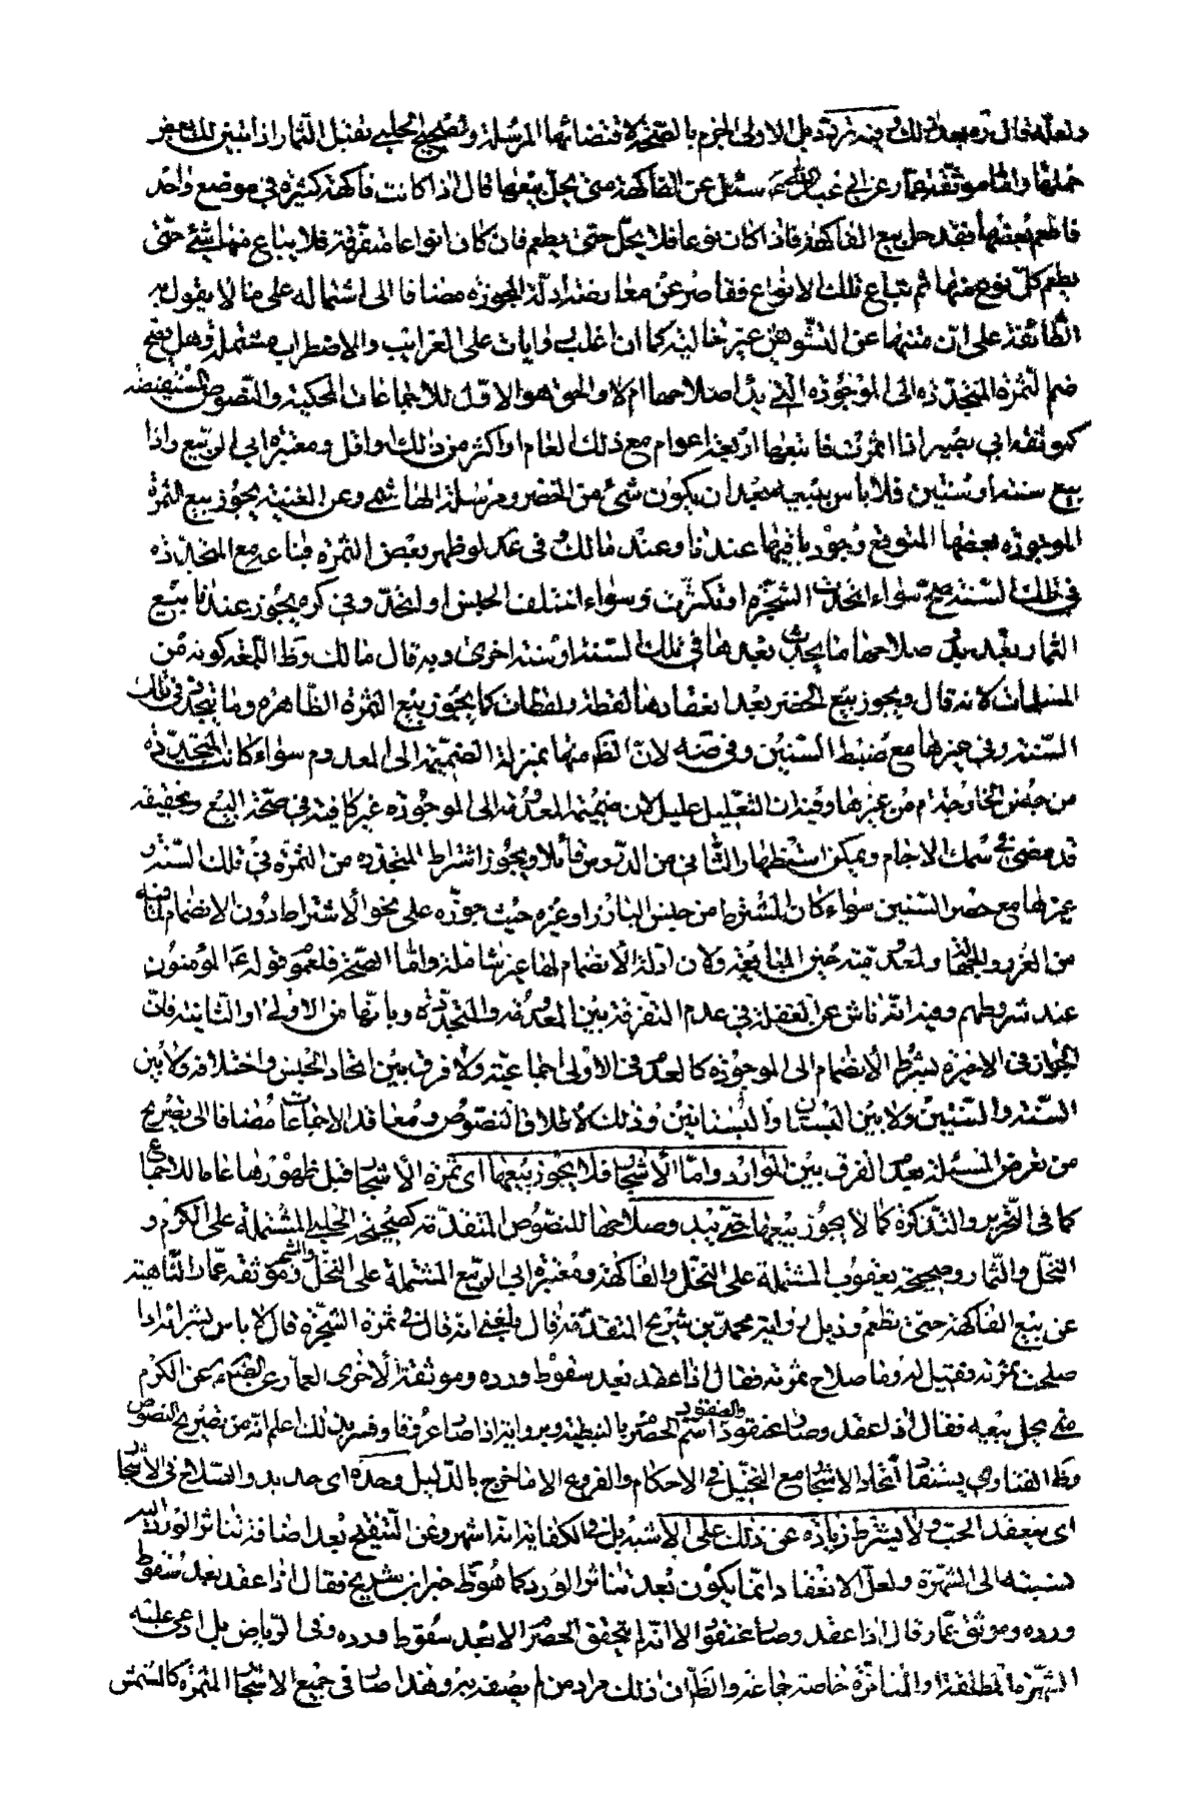 ولعله قال به بعد ذلك فيه تردد بل الاولى الجزم بالصحة لاقتضائها المرسلة وتصحيح الحلبي تقبل الثمار اذا تبين لك بعض
حملها واما موثقة عمار عن ابي عبد الله ع سئل عن الفاكهة متى يحل بيعها قال اذا كانت فاكهة كثيرة في موضع واحد
فاطعم بعضها فقد حل بيع الفاكهة فاذا كان نوعا فلا يحل حتى يطعم فان كان انواعا متفرقة فلا يباع منها شئ حتى
يطعم كل نوع منها ثم تباع تلك الانواع فقاصر عن معارضته ادلة المجوزة مضافا الى اشتماله على ما لا يقول به
الطائفة على ان متنها عن التشويش غير خالية كما ان اغلب روايات على الغرايب والاضطراب مشتملة وهل يصح
ضم الثمرة المتجددة الى الموجودة التي بدا صلاحها ام لا والحق هو الاول للاجماعات المحكية والنصوص المستفيضة
كموثقة ابي بصير اذا اثمرت فابتعها اربعة اعوام مع ذلك العام او اكثر من ذلك او اقل ومعتبرة ابي الربيع واذا
بيع سنته او سنتين فلا باس ببيعه بعد ان يكون شئ من الخضر ومرسلة الهاشمي وعن الغنية يجوز بيع الثمرة
الموجودة بعضها المتوقع وجود باقيها عندنا وعند مالك وفي عد لو ظهر بعض الثمرة فباعه مع المتجددة
في تلك السنة صح سواء اتحدت الشجرة او تكثرت وسواء اختلف الجنس او اتحد وفي كره يجوز عندنا بيع
الثمار بعد بدو صلاحها ما يحدث بعدها في تلك السنة او سنة اخرى وبه قال مالك وظ اللمعه كونه من
المسلمات لانه قال ويجوز بيع الخضر بعد انعقادها لقطة ولقطات كما يجوز بيع الثمرة الظاهرة وما يتجدد في تلك
السنة وفي غيرها مع ضبط السنين وفي ضه لان الظ منها بمنزلة الضميمة الى المعدوم سواء كانت المتجددة
من جنس الخارجة ام من غيرها وفيه ان التعليل عليل لان ضميمة المعدومة الى الموجودة غير كافية في صحة البيع وتحقيقه
قد مضى في سمك الاجام ويمكن استظهار الثاني من الدروس قائلا ويجوز اشتراط المتجددة من الثمرة في تلك السنة و
غيرها مع حصر السنين سواء كان المشترط من جنس البارز او غيره حيث جوزه على نحو الاشتراط دون الانضمام لما فيه
من الغرر والجهالة ولعدمه حين المبايعة ولان ادلة الانضمام لها غير شاملة واما الصحة فلعموم قوله ع المؤمنون
عند شروطهم وفيه انه ناش عن الغفلة في عدم التفرقة بين المعدومة والمتجددة وبانها من الاولى او الثانية فان
الجواز في الاخيرة بشرط الانضمام الى الموجودة كالعدم في الاولى اجماعية ولا فرق بين اتحاد الجنس واختلافه ولا بين
السنة والسنتين ولا بين البستان والبساتين وذلك لاطلاق النصوص ومعاقد الاجماعات مضافا الى تصريح
من تعرض المسئلة بعدم الفرق بين الموارد واما الاشجار فلا يجوز بيعها اى ثمرة الاشجار قبل ظهورها عاما للاجماع
كما في التحرير والتذكرة كما لا يجوز بيعها حتى يبدو صلاحها للنصوص المتقدمة كصحيحة الحلبي المشتملة على الكرم و
النخل والثمار وصحيحة يعقوب المشتملة على النخل والفاكهة ومعتبرة ابي الربيع المشتملة على النخل والثمر وموثقة عمار الناهية
عن بيع الفاكهة حتى تطعم وذيل رواية محمد بن شريح المتقدمة قال وبلغني انه قال في ثمرة الشجرة قال لا باس بشرائه اذا
صلحت ثمرته فقيل له وما صلاح ثمرته فقال اذا عقد بعد سقوط ورده وموثقة الاخرى لعمار عن الص ع عن الكرم
متى يحل بيعه فقال اذا عقد وصار عنقودا والعنقود اسم الحصرم بالنبطية وبرواية اذا صار عروقا وفسر بذلك اعلم انه من تصريح النصوص
وظ الفتاوى يستفاد اتحاد الاشجار مع النخيل في الاحكام والفروع الا ما خرج بالدليل وحده اى حد بدو الصلاح في الاشجار
اى ينعقد الحب ولا يشترط زيادة عن ذلك على الاشبه بل في الكفاية انه اشهر وعن التنقيح بعد اضافة تناثر الورد اليه
نسبته الى الشهرة ولعل الانعقاد دائما يكون بعد تناثر الورد كما هو ظ خبر ابن شريح فقال اذا عقد بعد سقوط
ورده وموثق عمار قال اذا عقد وصار عنقودا الا انه لم يتحقق الحصرم الا بعد سقوط ورده وفي الرياض بل ادعى عليه
الشهرة المطلقة او المتاخرة خاصة جماعة والظ ان ذلك مراد من لم يصفه به وهذا صار في جميع الاشجار المثمرة كالمشمش